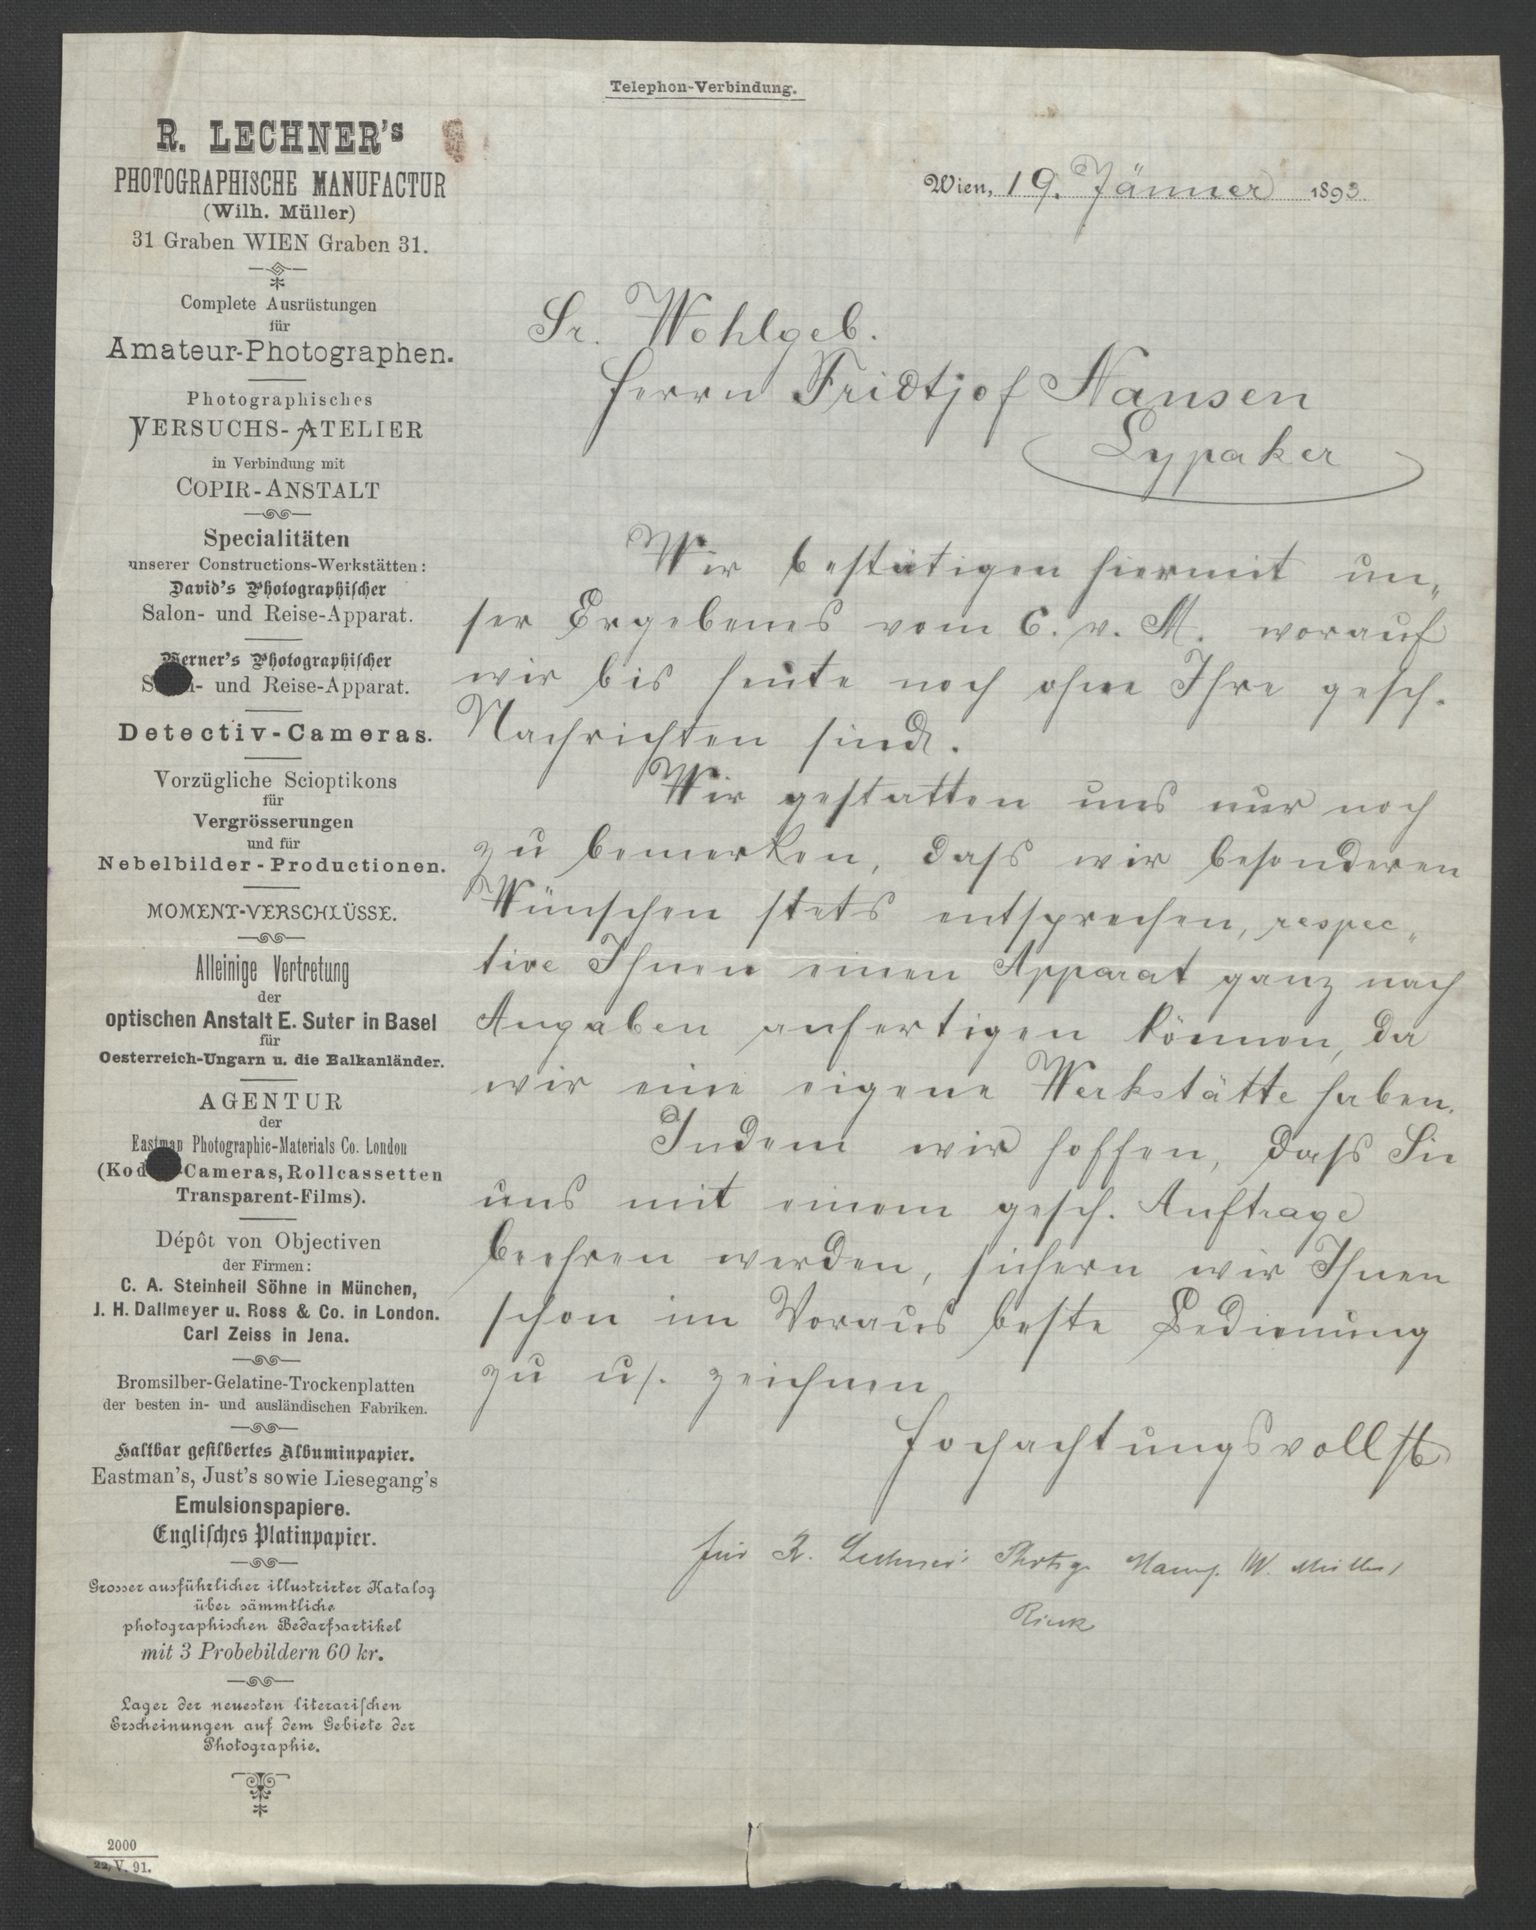 Telephon-Verbindung.
R. LECHNER's
PHOTOGRAPHISCHE MANUFACTUR
(Wilh. Müller)
31 Graben WIEN Graben 31.
Complete Ausrüstungen
für
Amateur-Photographen.
Photographisches
VERSUCHS-ATELIER
in Verbindung mit
COPIR-ANSTALT
Specialitäten
unserer Constructions-Werkstätten:
David's Photographischer
Salon- und Reise-Apparat.
Werner's Photographischer
Salon- und Reise-Apparat.
Detectiv-Cameras.
Vorzügliche Scioptikons
für
Vergrösserungen
und für
Nebelbilder-Productionen.
MOMENT-VERSCHLÜSSE.
Alleinige Vertretung
der
optischen Anstalt E. Suter in Basel
für
Oesterreich-Ungarn u. die Balkanländer.
AGENTUR
der
Eastman Photographic-Materials Co. London
(Kodak-Cameras, Rollcassetten
Transparent-Films).
Dépôt von Objectiven
der Firmen:
C. A. Steinheil Söhne in München,
J. H. Dallmeyer u. Ross & Co. in London.
Carl Zeiss in Jena.
Bromsilber-Gelatine-Trockenplatten
der besten in- und ausländischen Fabriken.
Haltbar gesilbertes Albuminpapier.
Eastman's, Just's sowie Liesegang's
Emulsionspapiere.
Englisches Platinpapier.
Grosser ausführlicher illustrirter Katalog
über sämmtliche
photographischen Bedarfsartikel
mit 3 Probebildern 60 kr.
Lager der neuesten literarischen
Erscheinungen auf dem Gebiete der
Photographie.
2000
22. V. 91.
Wien, 19. Jänner 1893
Sr. Wohlgeb.
Herrn Fridtjof Nansen
Lypaker
Wir bestätigen hiermit un-
ser Ergebenes vom 6. v. M. worauf
wir bis heute noch ohne Ihre gesch.
Nachrichten sind.
Wir gestatten uns nur noch
zu bemerken, dass wir besonderen
Wünschen stets entsprechen, respec-
tive Ihnen einen Apparat ganz nach
Angaben anfertigen können, da
wir eine eigene Werkstätte haben.
Indem wir hoffen, dass Sie
uns mit einem gesch. Auftrage
beehren werden, sichern wir Ihnen
schon im Voraus beste Bedienung
zu u/. zeichnen
Hochachtungsvollst
für R. Lechner's Photogr. Manuf. (W. Müller)